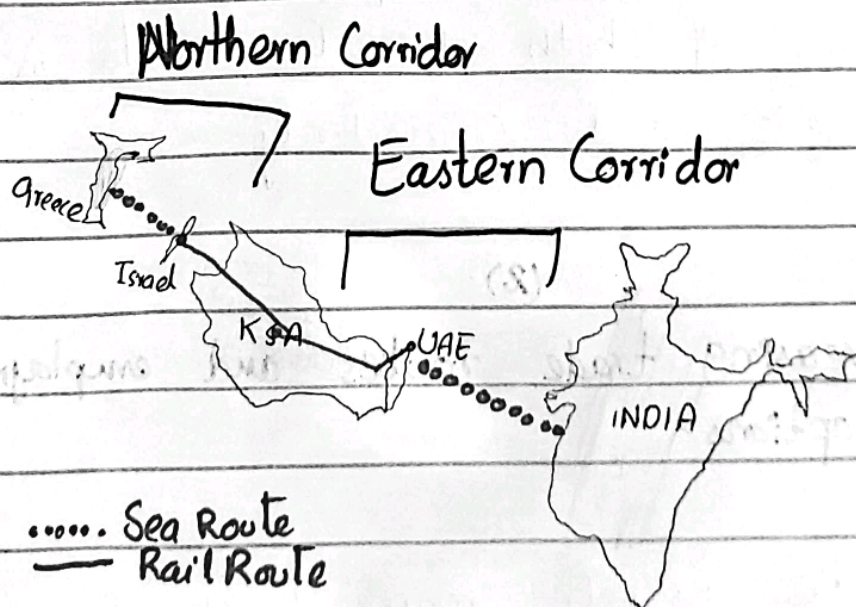 Northern Corridor
Eastern Corridor
Greece
Israel
KSA
UAE
INDIA
Sea Route
Rail Route